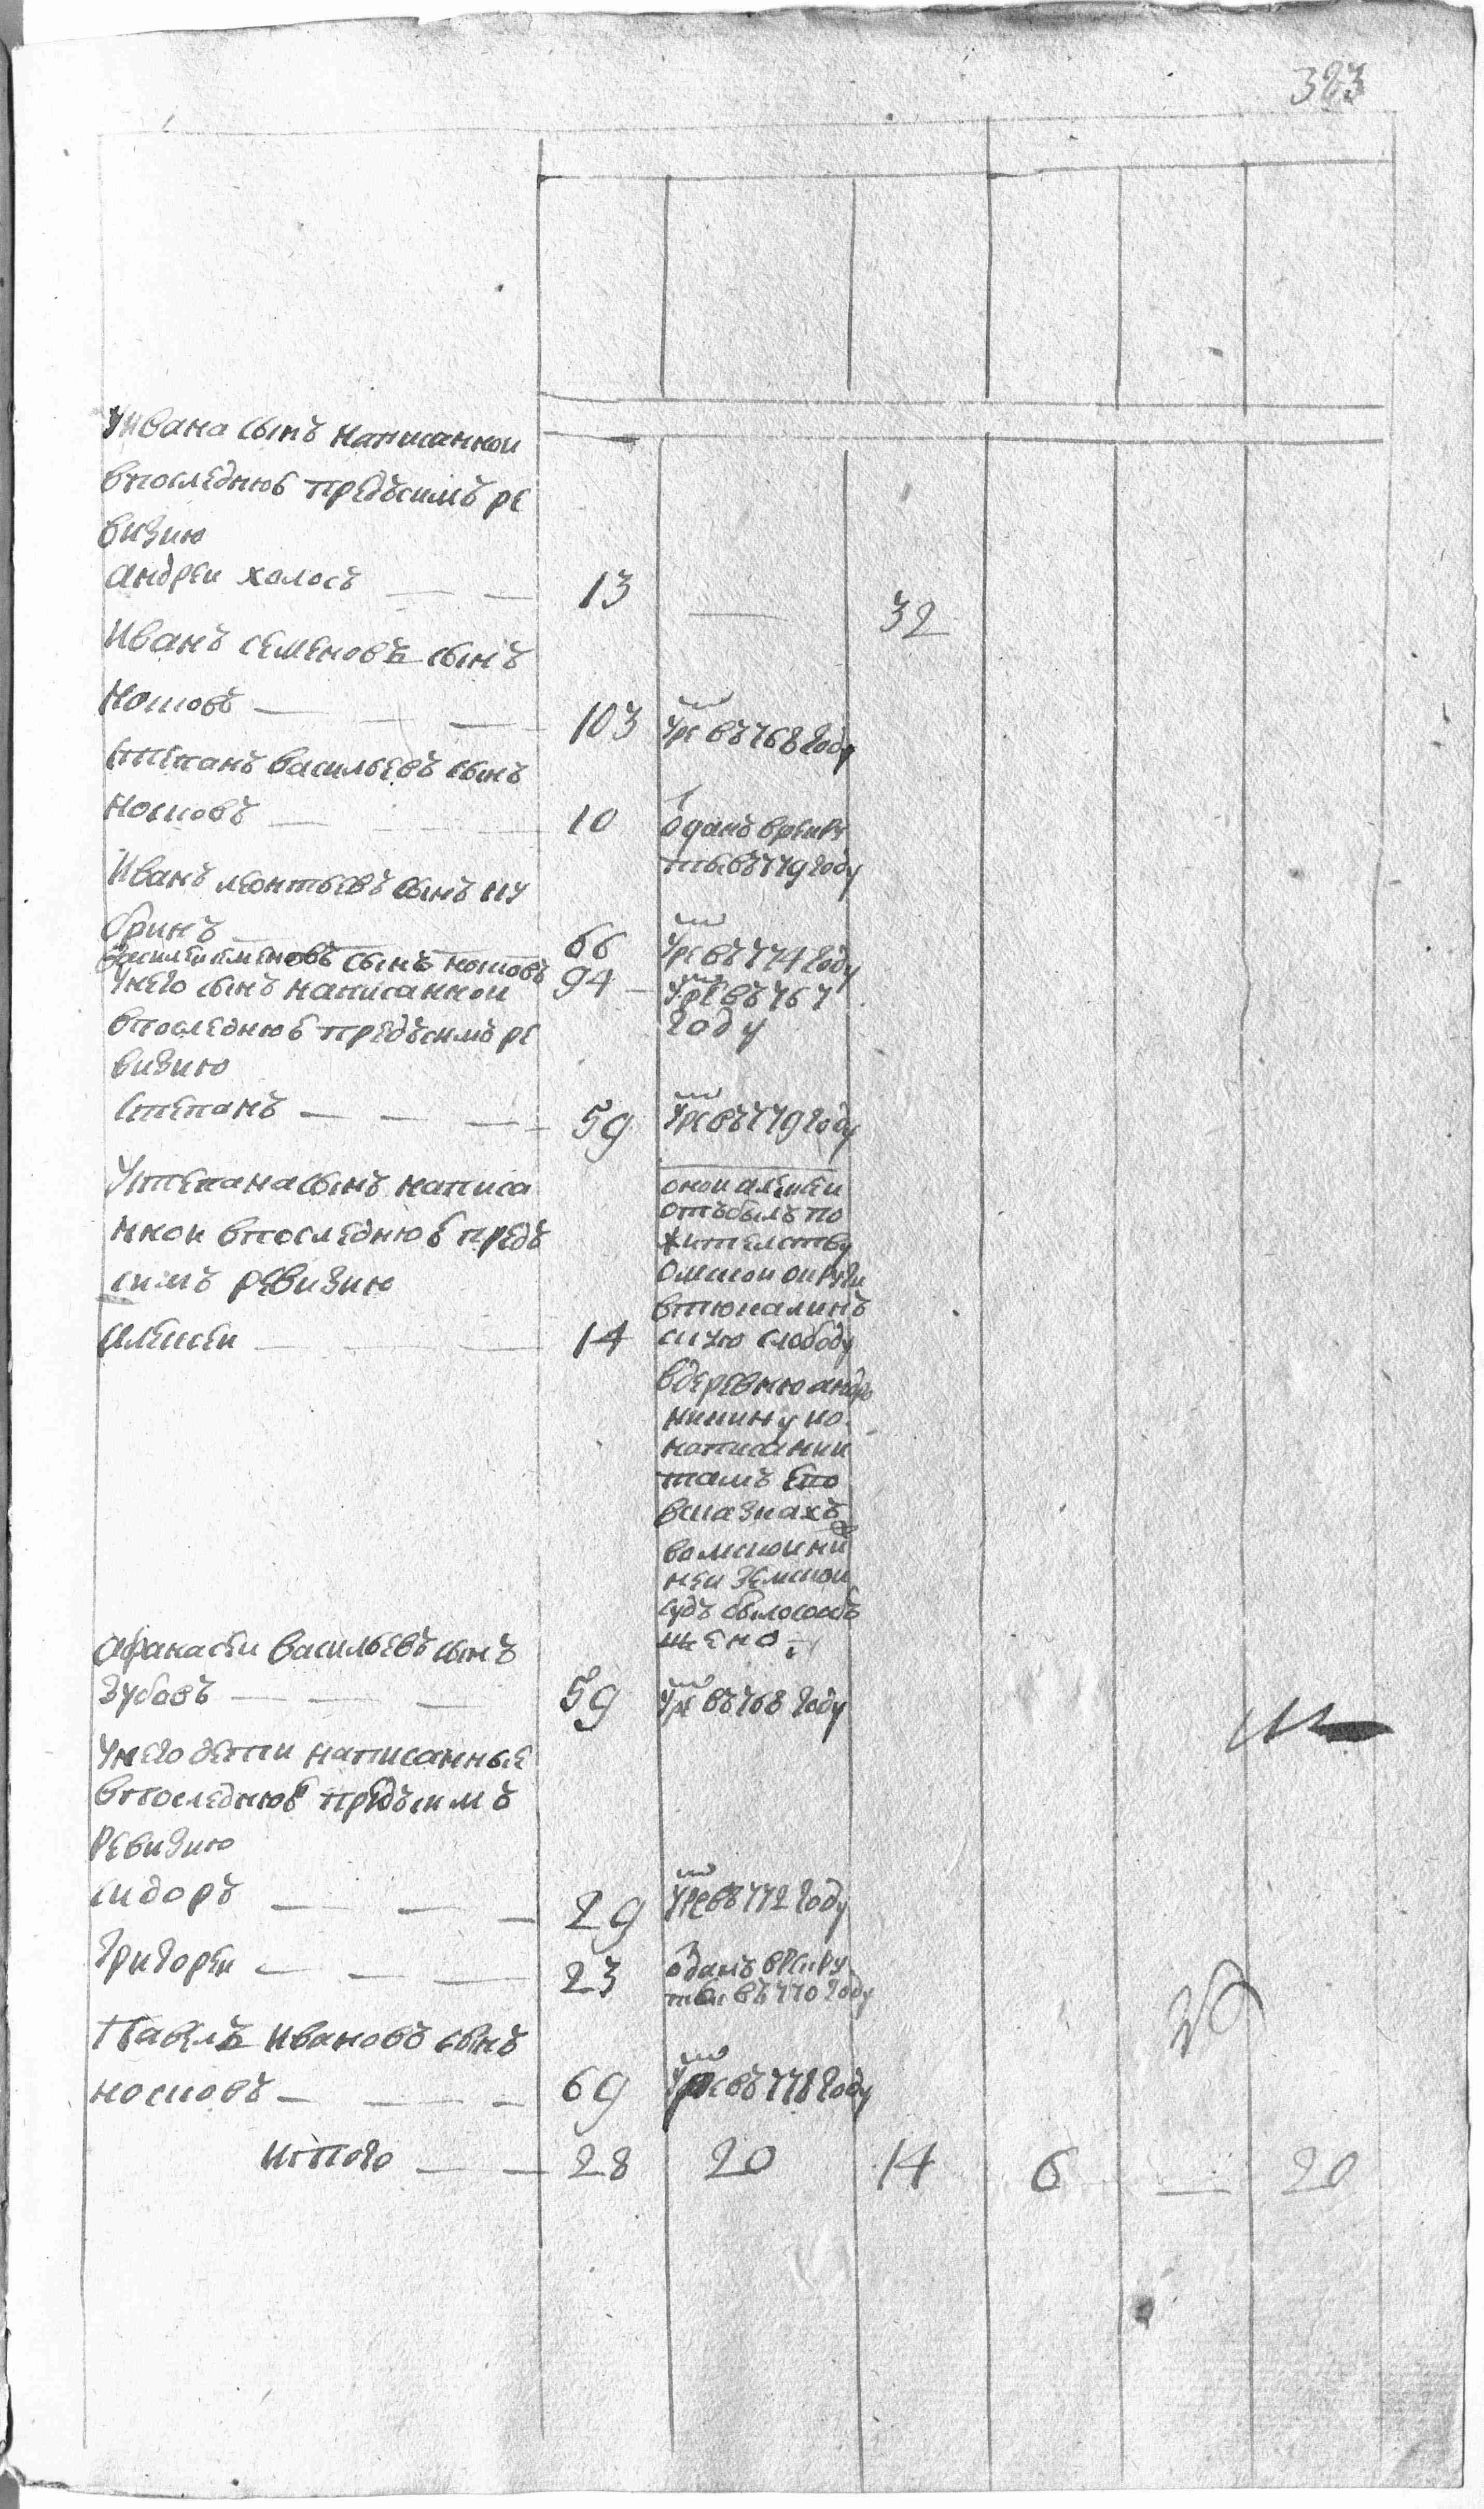 323
У ивана сынъ написаннои
в последнюю предъ симъ ре
визию
андреи холостъ — — 13 — 32
Иванъ семеновъ сынъ
Носковъ — — — 103 умре въ 768 году
степанъ васильевъ сынъ
Носковъ — — — 10 отданъ в рекру
ты въ 779 году
Иванъ леонтьевъ сынъ ку
бринъ — 66 умре въ 774 году
василеи семеновъ сынъ носковъ 94 — умре въ 767
году
у него сынъ написаннои
в последнюю предъ симъ ре
визию
степанъ — — — 59 умре въ 779 году
У степана сынъ написа
ннои в последнюю предъ
симъ ревизию
алексеи — — — 14
онои алексеи
отъбылъ по
жителству
омскои округи
в тюкалинъ
скую слободу
в деревню андро
никину ко
написании
тамъ ево
в сказкахъ
во мскои ни
жнеи земскои
судъ было сообъ
щено
афанасеи васильевъ сынъ
Зубовъ — — — 59 умре въ 768 году
у него дети написанные
в последнюю предъ симъ
ревизию
сидоръ — — — 29 умре въ 772 году
григореи — — — 23 отданъ в рекру
ты въ 770 году
Павелъ Ивановъ сынъ
носковъ — — — 69 умре въ 778 году
Итого — — 28 20 14 6 — 20